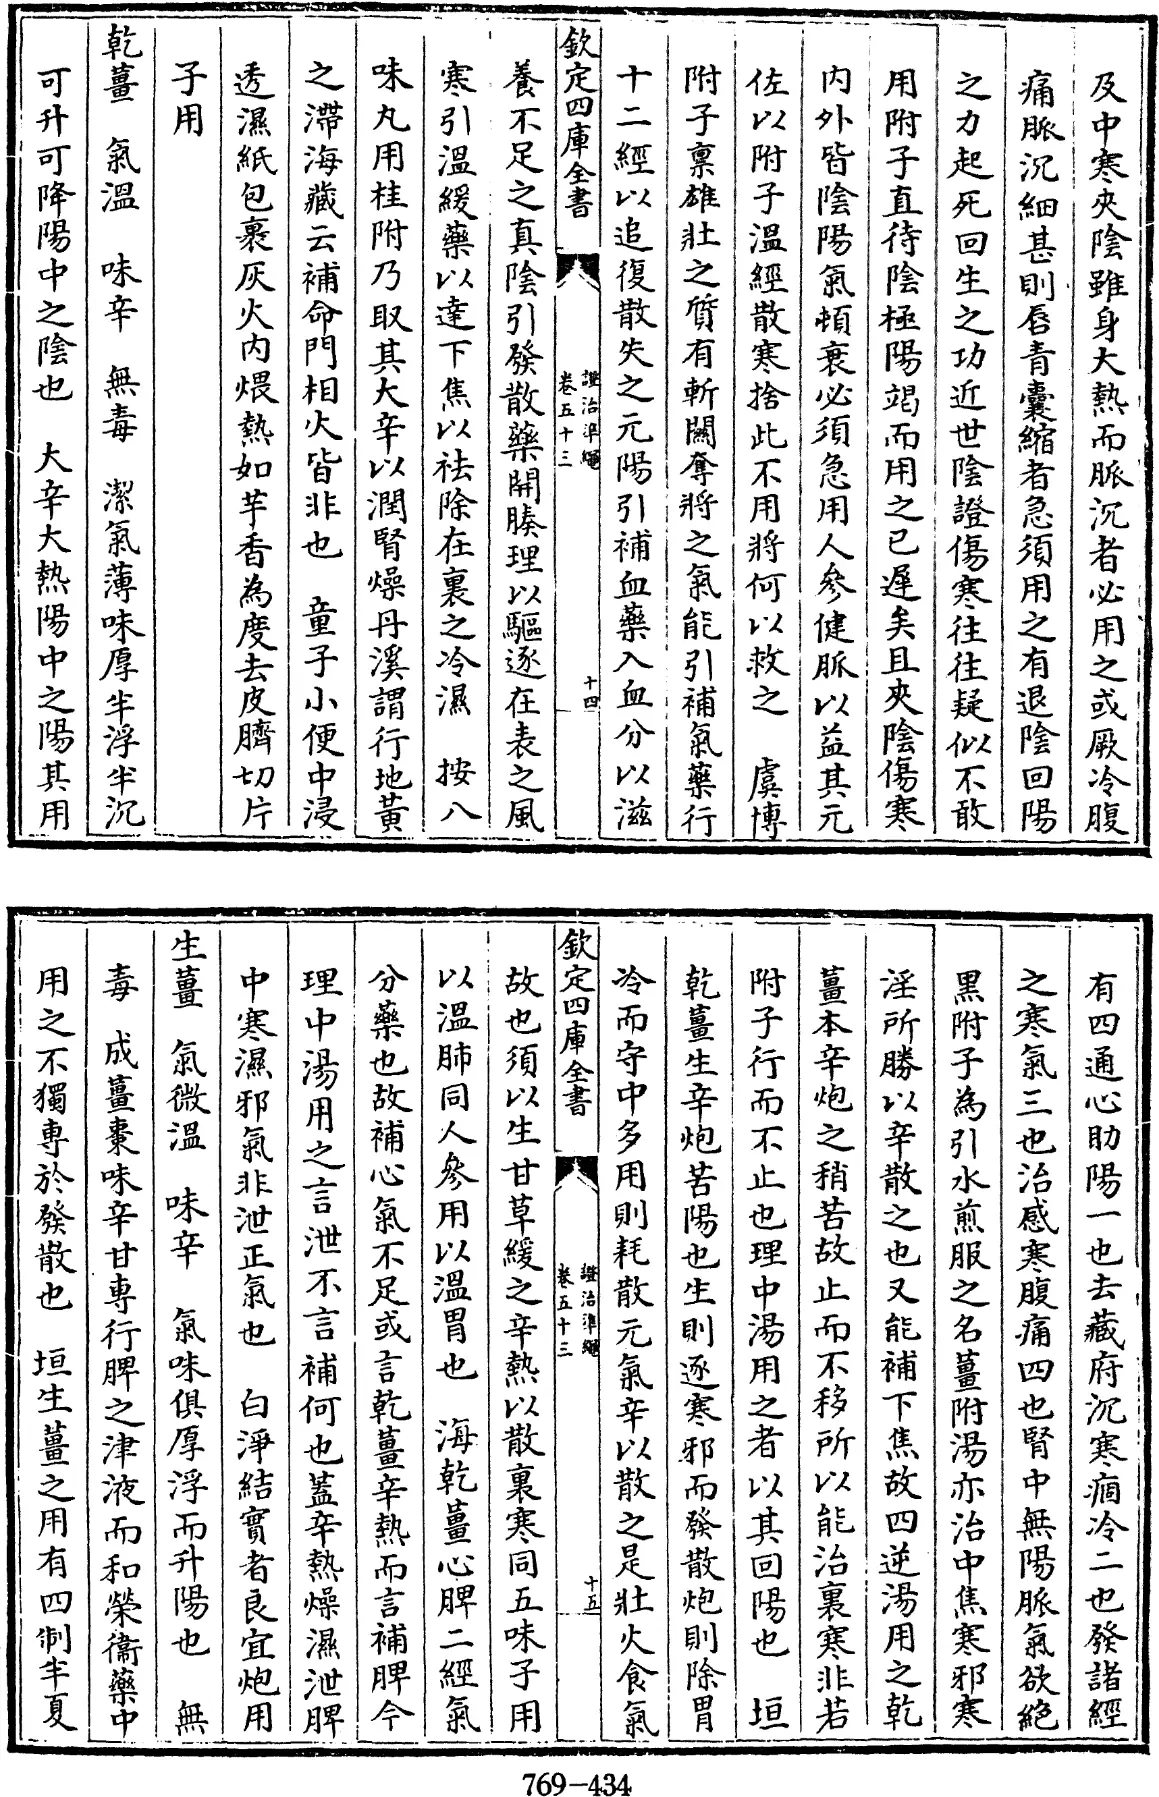 及中寒夾陰雖身大熱而脈沉者必用之或厥冷腹
痛脈沉細甚則唇青囊縮者急須用之有退陰回陽
之力起死回生之功近世陰證傷寒往往疑似不敢
用附子直待陰極陽竭而用之已遲矣且夾陰傷寒
内外皆陰陽氣頓衰必須急用人參健脈以益其元
佐以附子溫經散寒捨此不用將何以救之　虞博
附子禀雄壯之質有斬關奪將之氣能引補氣藥行
十二經以追復散失之元陽引補血藥入血分以滋
欽定四庫全書
證治準繩
卷五十三
十四
養不足之真陰引發散藥開腠理以驅逐在表之風
寒引溫緩藥以達下焦以祛除在裏之冷濕　按八
味丸用桂附乃取其大辛以潤腎燥丹溪謂行地黃
之滯海藏云補命門相火皆非也　童子小便中浸
透濕紙包裹灰火内煨熱如芋香為度去皮臍切片
子用
乾薑　氣溫　味辛　無毒　潔氣薄味厚半浮半沉
可升可降陽中之陰也　大辛大熱陽中之陽其用
有四通心助陽一也去藏府沉寒痼冷二也發諸經
之寒氣三也治感寒腹痛四也腎中無陽脈氣欲絶
黑附子為引水煎服之名薑附湯亦治中焦寒邪寒
淫所勝以辛散之也又能補下焦故四逆湯用之乾
薑本辛炮之稍苦故止而不移所以能治裏寒非若
附子行而不止也理中湯用之者以其回陽也　垣
乾薑生辛炮苦陽也生則逐寒邪而發散炮則除胃
冷而守中多用則耗散元氣辛以散之是壯火食氣
欽定四庫全書
證治準繩
卷五十三
十五
故也須以生甘草緩之辛熱以散裏寒同五味子用
以溫肺同人參用以溫胃也　海乾薑心脾二經氣
分藥也故補心氣不足或言乾薑辛熱而言補脾今
理中湯用之言泄不言補何也蓋辛熱燥濕泄脾
中寒濕邪氣非泄正氣也　白淨結實者良宜炮用
生薑　氣微溫　味辛　氣味俱厚浮而升陽也　無
毒　成薑棗味辛甘專行脾之津液而和榮衞藥中
用之不獨專於發散也　垣生薑之用有四制半夏
769-434